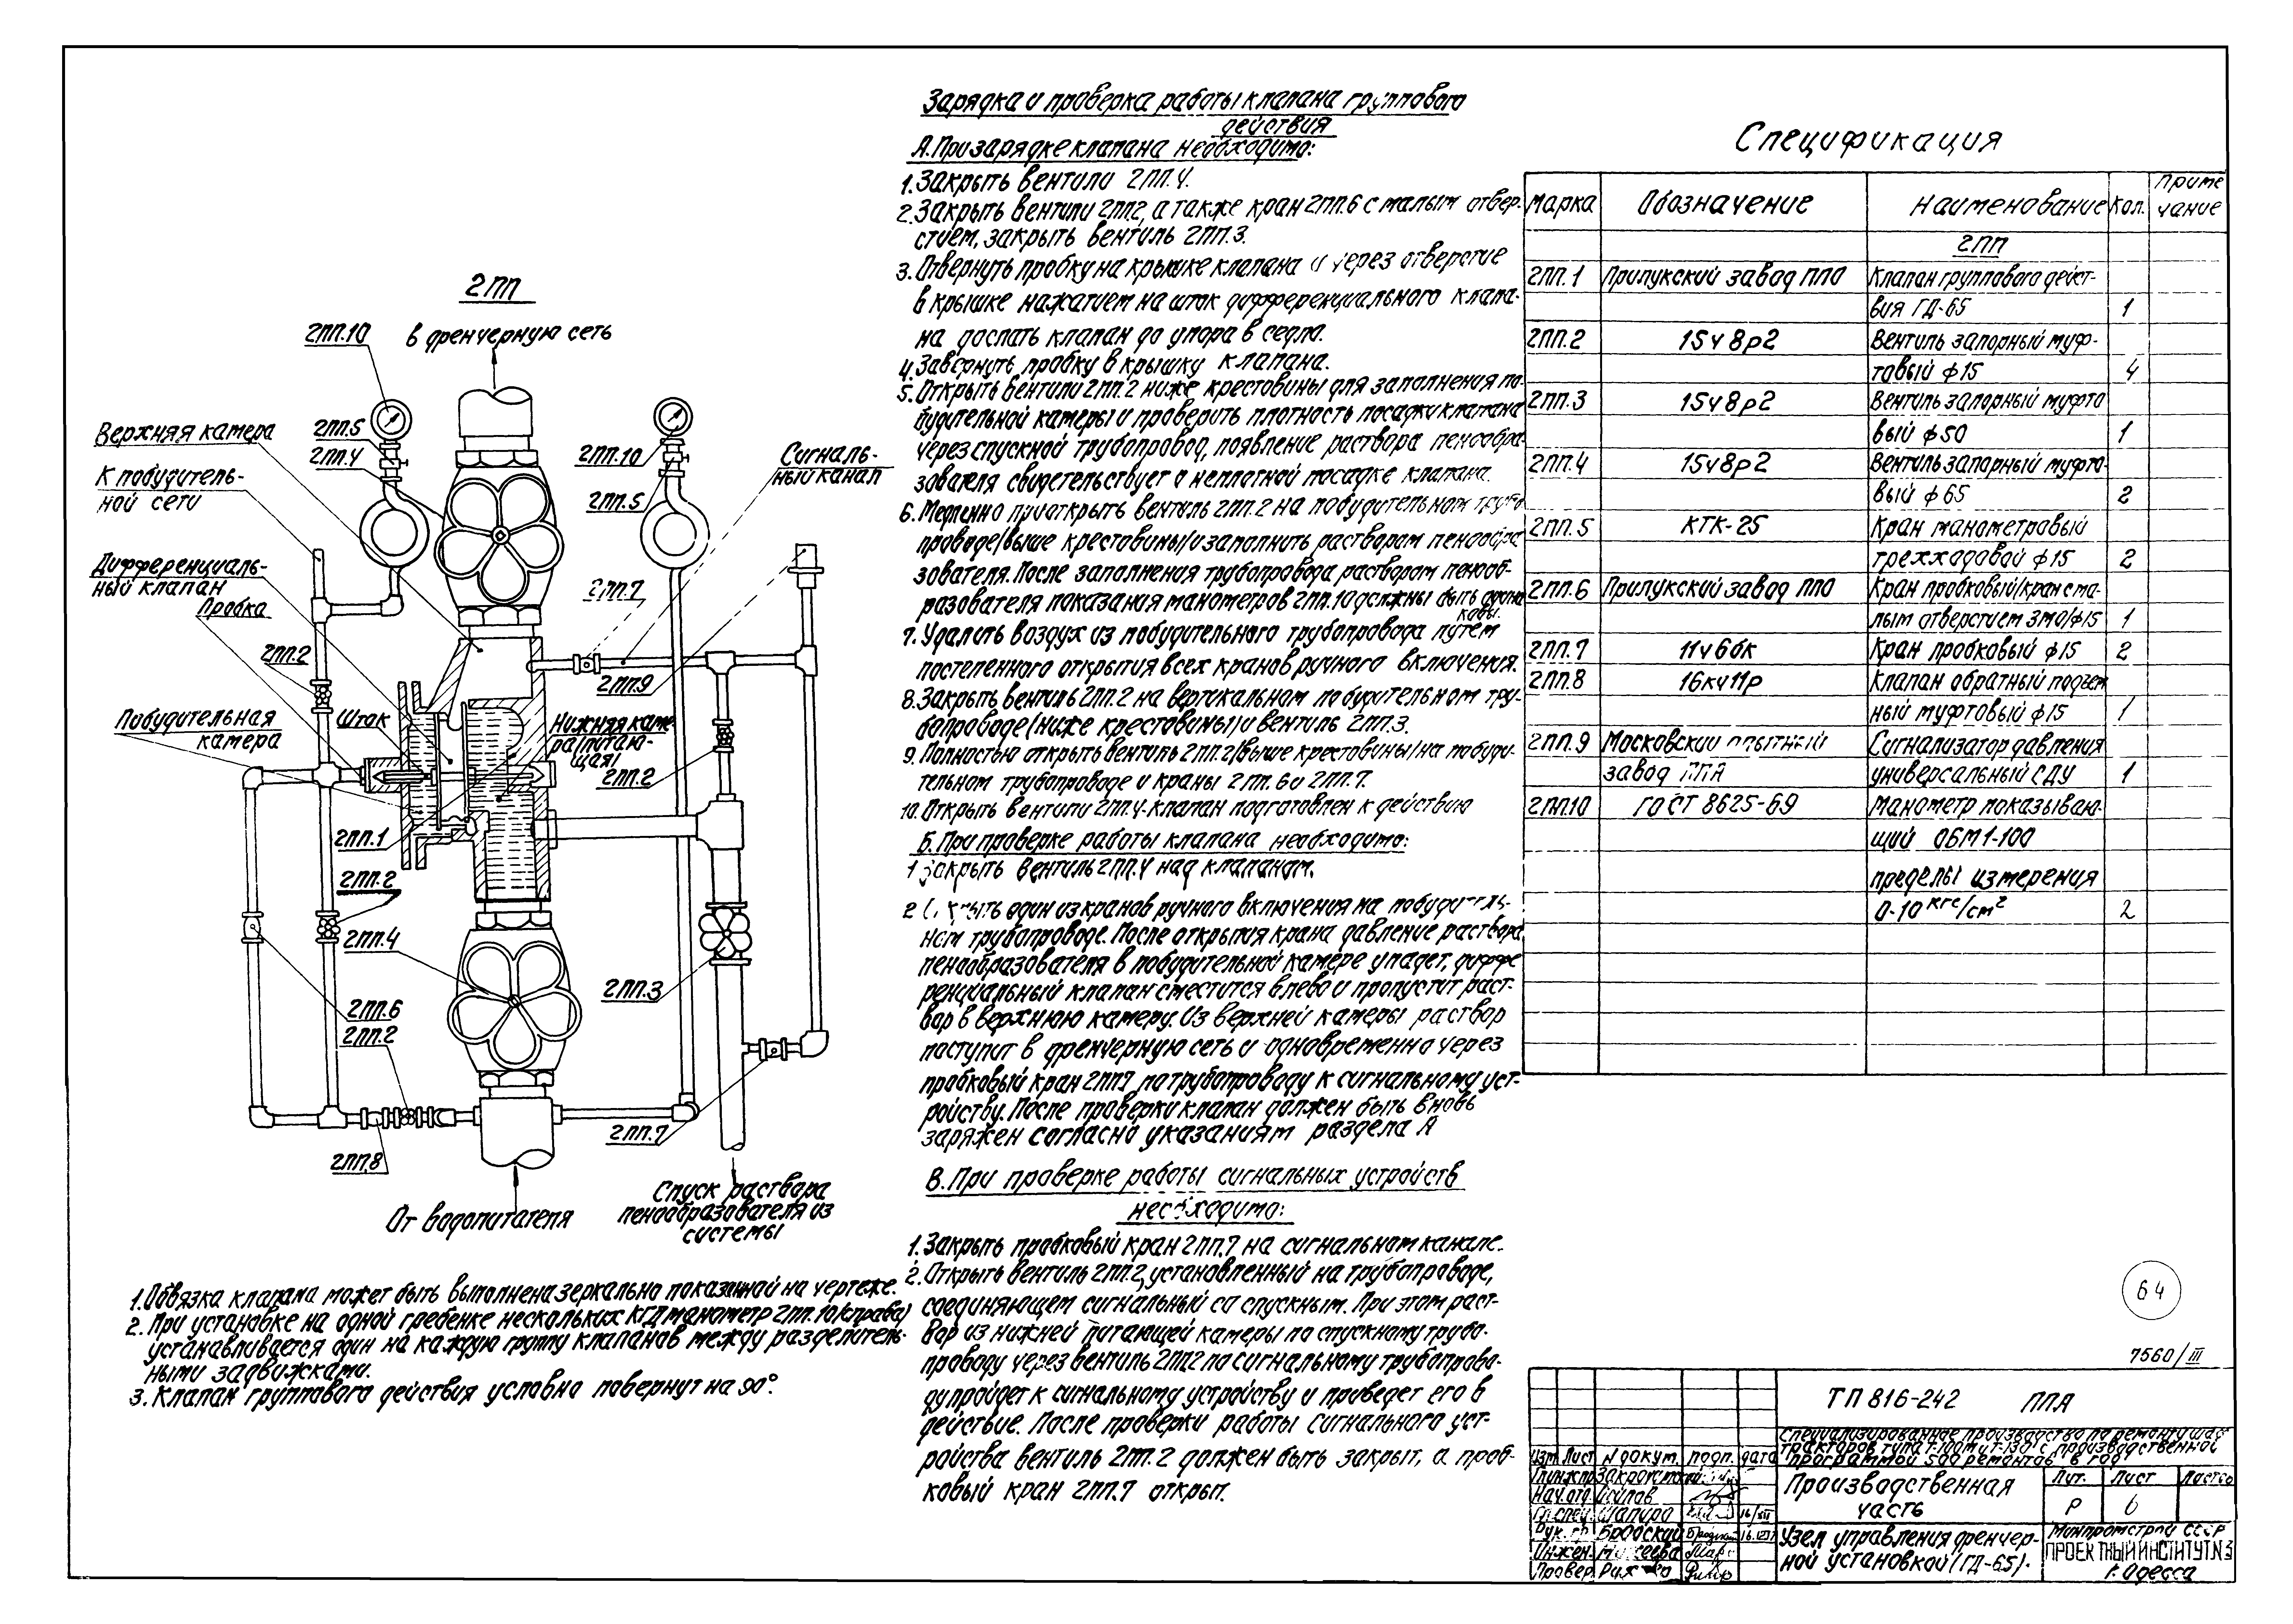 2ПП
в дренчерную сеть
2ПП.10
Верхняя камера
2ПП.5
2ПП.4
К побудитель-
ной сети
2ПП.10
2ПП.5
Сигналь-
ный канал
Дифференциаль-
ный клапан
Пробка
2ПП.7
2ПП.2
2ПП.9
Побудительная
камера
Шток
Нижняя каме-
ра (питаю-
щая)
2ПП.2
2ПП.1
2ПП.2
2ПП.4
2ПП.3
2ПП.6
2ПП.2
2ПП.7
2ПП.8
От водопитателя
Спуск раствора
пенообразователя из
системы
1. Обвязка клапана может быть выполнена зеркально показанной на чертеже.
2. При установке на одной гребенке нескольких КГД манометр 2ПП.10 (справа)
устанавливается один на каждую группу клапанов между разделитель-
ными задвижками.
3. Клапан группового действия условно повернут на 90°.
Зарядка и проверка работы клапана группового
действия
А. При зарядке клапана необходимо:
1. Закрыть вентили 2ПП.4.
2. Закрыть вентили 2ПП2, а также кран 2ПП.6 с малым отвер-
стием, закрыть вентиль 2ПП.3.
3. Отвернуть пробку на крышке клапана и через отверстие
в крышке нажатием на шток дифференциального клапа-
на дослать клапан до упора в седло.
4. Завернуть пробку в крышку клапана.
5. Открыть вентили 2ПП.2 ниже крестовины для заполнения по-
будительной камеры и проверить плотность посадки клапана
через спускной трубопровод, появление раствора пенообра-
зователя свидетельствует о неплотной посадке клапана.
6. Медленно приоткрыть вентиль 2ПП.2 на побудительном трубо
проводе (выше крестовины) и заполнить раствором пенообра
зователя. После заполнения трубопровода раствором пенооб-
разователя показания манометров 2ПП.10 должны быть одина
ковы.
7. Удалить воздух из побудительного трубопровода путем
постепенного открытия всех кранов ручного включения.
8. Закрыть вентиль 2ПП.2 на вертикальном побудительном тру-
бопроводе (ниже крестовины) и вентиль 2ПП.3.
9. Полностью открыть вентиль 2ПП.2 (выше крестовины) на побуди-
тельном трубопроводе и краны 2ПП.6 и 2ПП.7.
10. Открыть вентили 2ПП.4-клапан подготовлен к действию
Б. При проверке работы клапана необходимо:
1 Закрыть вентиль 2ПП.4 над клапаном.
2 Открыть один из кранов ручного включения на побудитель-
ном трубопроводе. После открытия крана давление раствора
пенообразователя в побудительной камере упадет, диффе
ренциальный клапан сместится влево и пропустит раст-
вор в верхнюю камеру. Из верхней камеры раствор
поступит в дренчерную сеть и одновременно через
пробковый кран 2ПП7 по трубопроводу к сигнальному уст-
ройству. После проверки клапан должен быть вновь
заряжен согласно указаниям раздела А
В. При проверке работы сигнальных устройств
необходимо:
1. Закрыть пробковый кран 2ПП.7 на сигнальном канале.
2. Открыть вентиль 2ПП.2, установленный на трубопроводе,
соединяющем сигнальный со спускным. При этом раст-
вор из нижней питающей камеры по спускному трубо-
проводу через вентиль 2ПП2 по сигнальному трубопрово-
ду пройдет к сигнальному устройству и приведет его в
действие. После проверки работы сигнального уст-
ройства вентиль 2ПП.2 должен быть закрыт, а проб-
ковый кран 2ПП.7 открыт.
Спецификация
Марка Обозначение Наименование Кол. Приме
чание
2ПП
2ПП.1 Прилукский завод ППО Клапан группового дейст-
вия ГД-65 1
2ПП.2 15ч8р2 Вентиль запорный муф-
товый ф15 4
2ПП.3 15ч8р2 Вентиль запорный муфто
вый ф50 1
2ПП.4 15ч8р2 Вентиль запорный муфто-
вый ф65 2
2ПП.5 КТК-25 Кран манометровый
трехходовой ф15 2
2ПП.6 Прилукский завод ППО Кран пробковый (кран с ма-
лым отверстием 3мо) ф15 1
2ПП.7 11ч6бк Кран пробковый ф15 2
2ПП.8 16кч11р Клапан обратный подъем
ный муфтовый ф15 1
2ПП.9 Московский опытный Сигнализатор давления
завод ППА универсальный СДУ 1
2ПП10 ГОСТ 8625-69 Манометр показываю-
щий ОБМ1-100
пределы измерения
0-10 кгс/см² 2
64
7560/III
ТП 816-242 ППА
Специализированное производство по ремонту шасси
тракторов типа Т-100М и Т-130 с производственной
программой 500 ремонтов в год
Изм Лист № докум. подп. дата
Гл.инж.пр
Нач.отд. Осипов
Гл.спец. Шапиро 16/XII
Рук.гр. Бродский
Инжен.
Провер.
Производственная
часть
Лит. Лист Листов
Р 6
Узел управления дренчер-
ной установкой (ГД-65).
Минпромстрой СССР
ПРОЕКТНЫЙ ИНСТИТУТ №3
г. Одесса